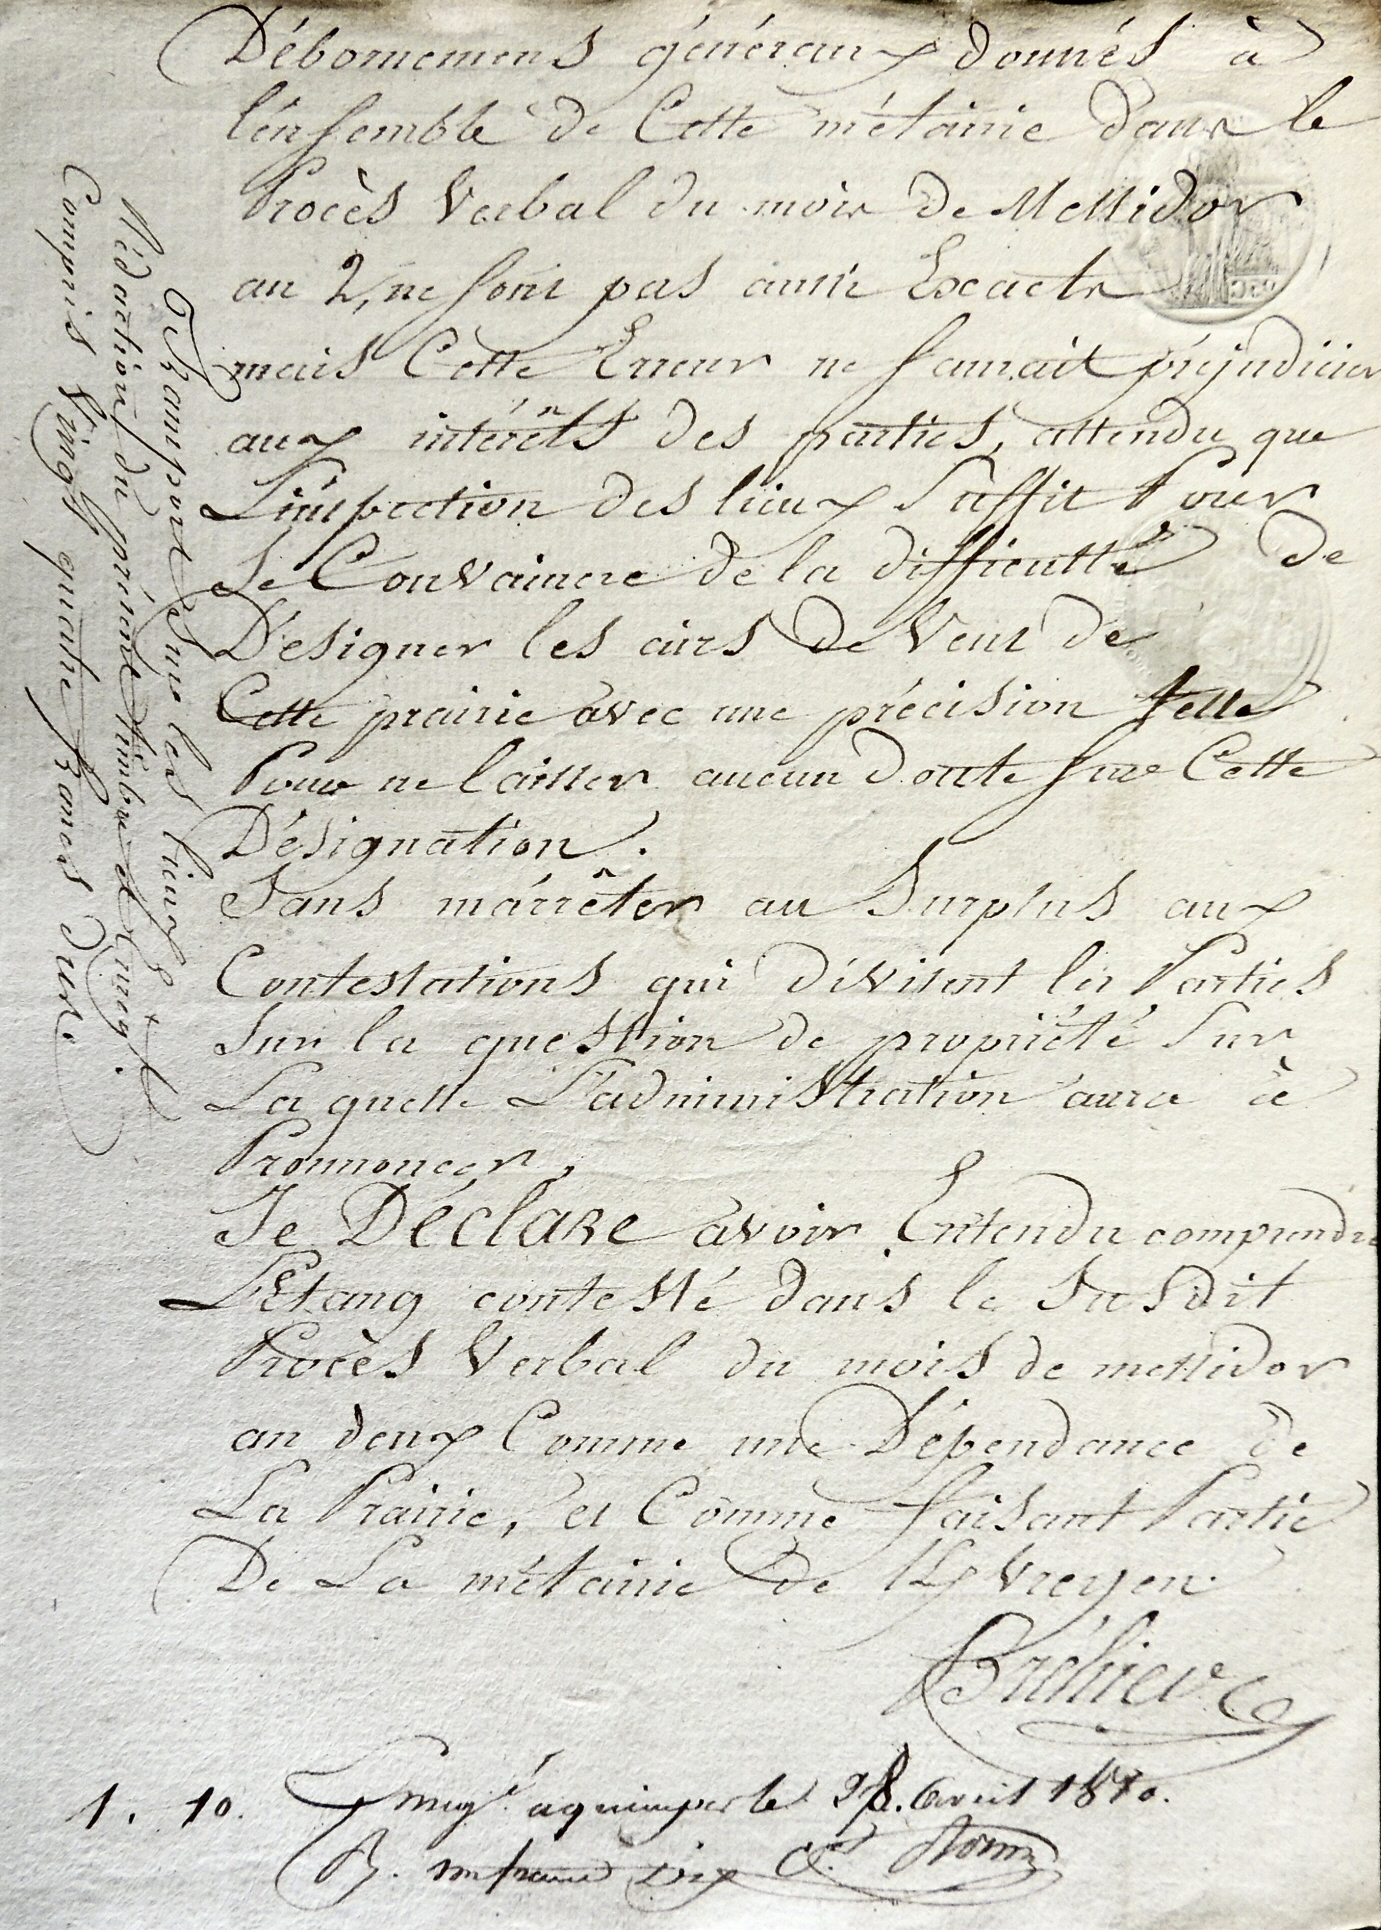 Débornemens généraux donnés à
l'ensemble de Cette métairie dans le
Procès Verbal du mois de Messidor
an 2, ne sont pas aussi Exacts
mais Cette Erreur ne saurait préjudicier
aux intérêts des parties, attendu que
L'inspection des lieux Suffit Pour
Se Convaincre de la difficultté de
Désigner les airs de Vent de
Cette prairie avec une précision telle
Pour ne laisser aucun doute sur Cette
Désignation.
Sans m'arrêter au Surplus aux
Contestations qui divisent les Parties
Sur la question de propriété Sur
Laquelle L'administration aura à
Pronnoncer,
Je Déclare avoir Entendu comprendre
L'Etang contesté dans le Susdit
Procès Verbal du mois de messidor
an deux Comme une Dépendance de
La Prairie, et Comme faisant Partie
De La métairie de Kvreyen.
Bréhier
Transport sur les lieux &
Rédaction du présent timbre et Enreg.t
Compris Vingt quatre francs
1. 10. Enregé. a quimperlé le 28. avril 1810.
R. un franc dix Ces